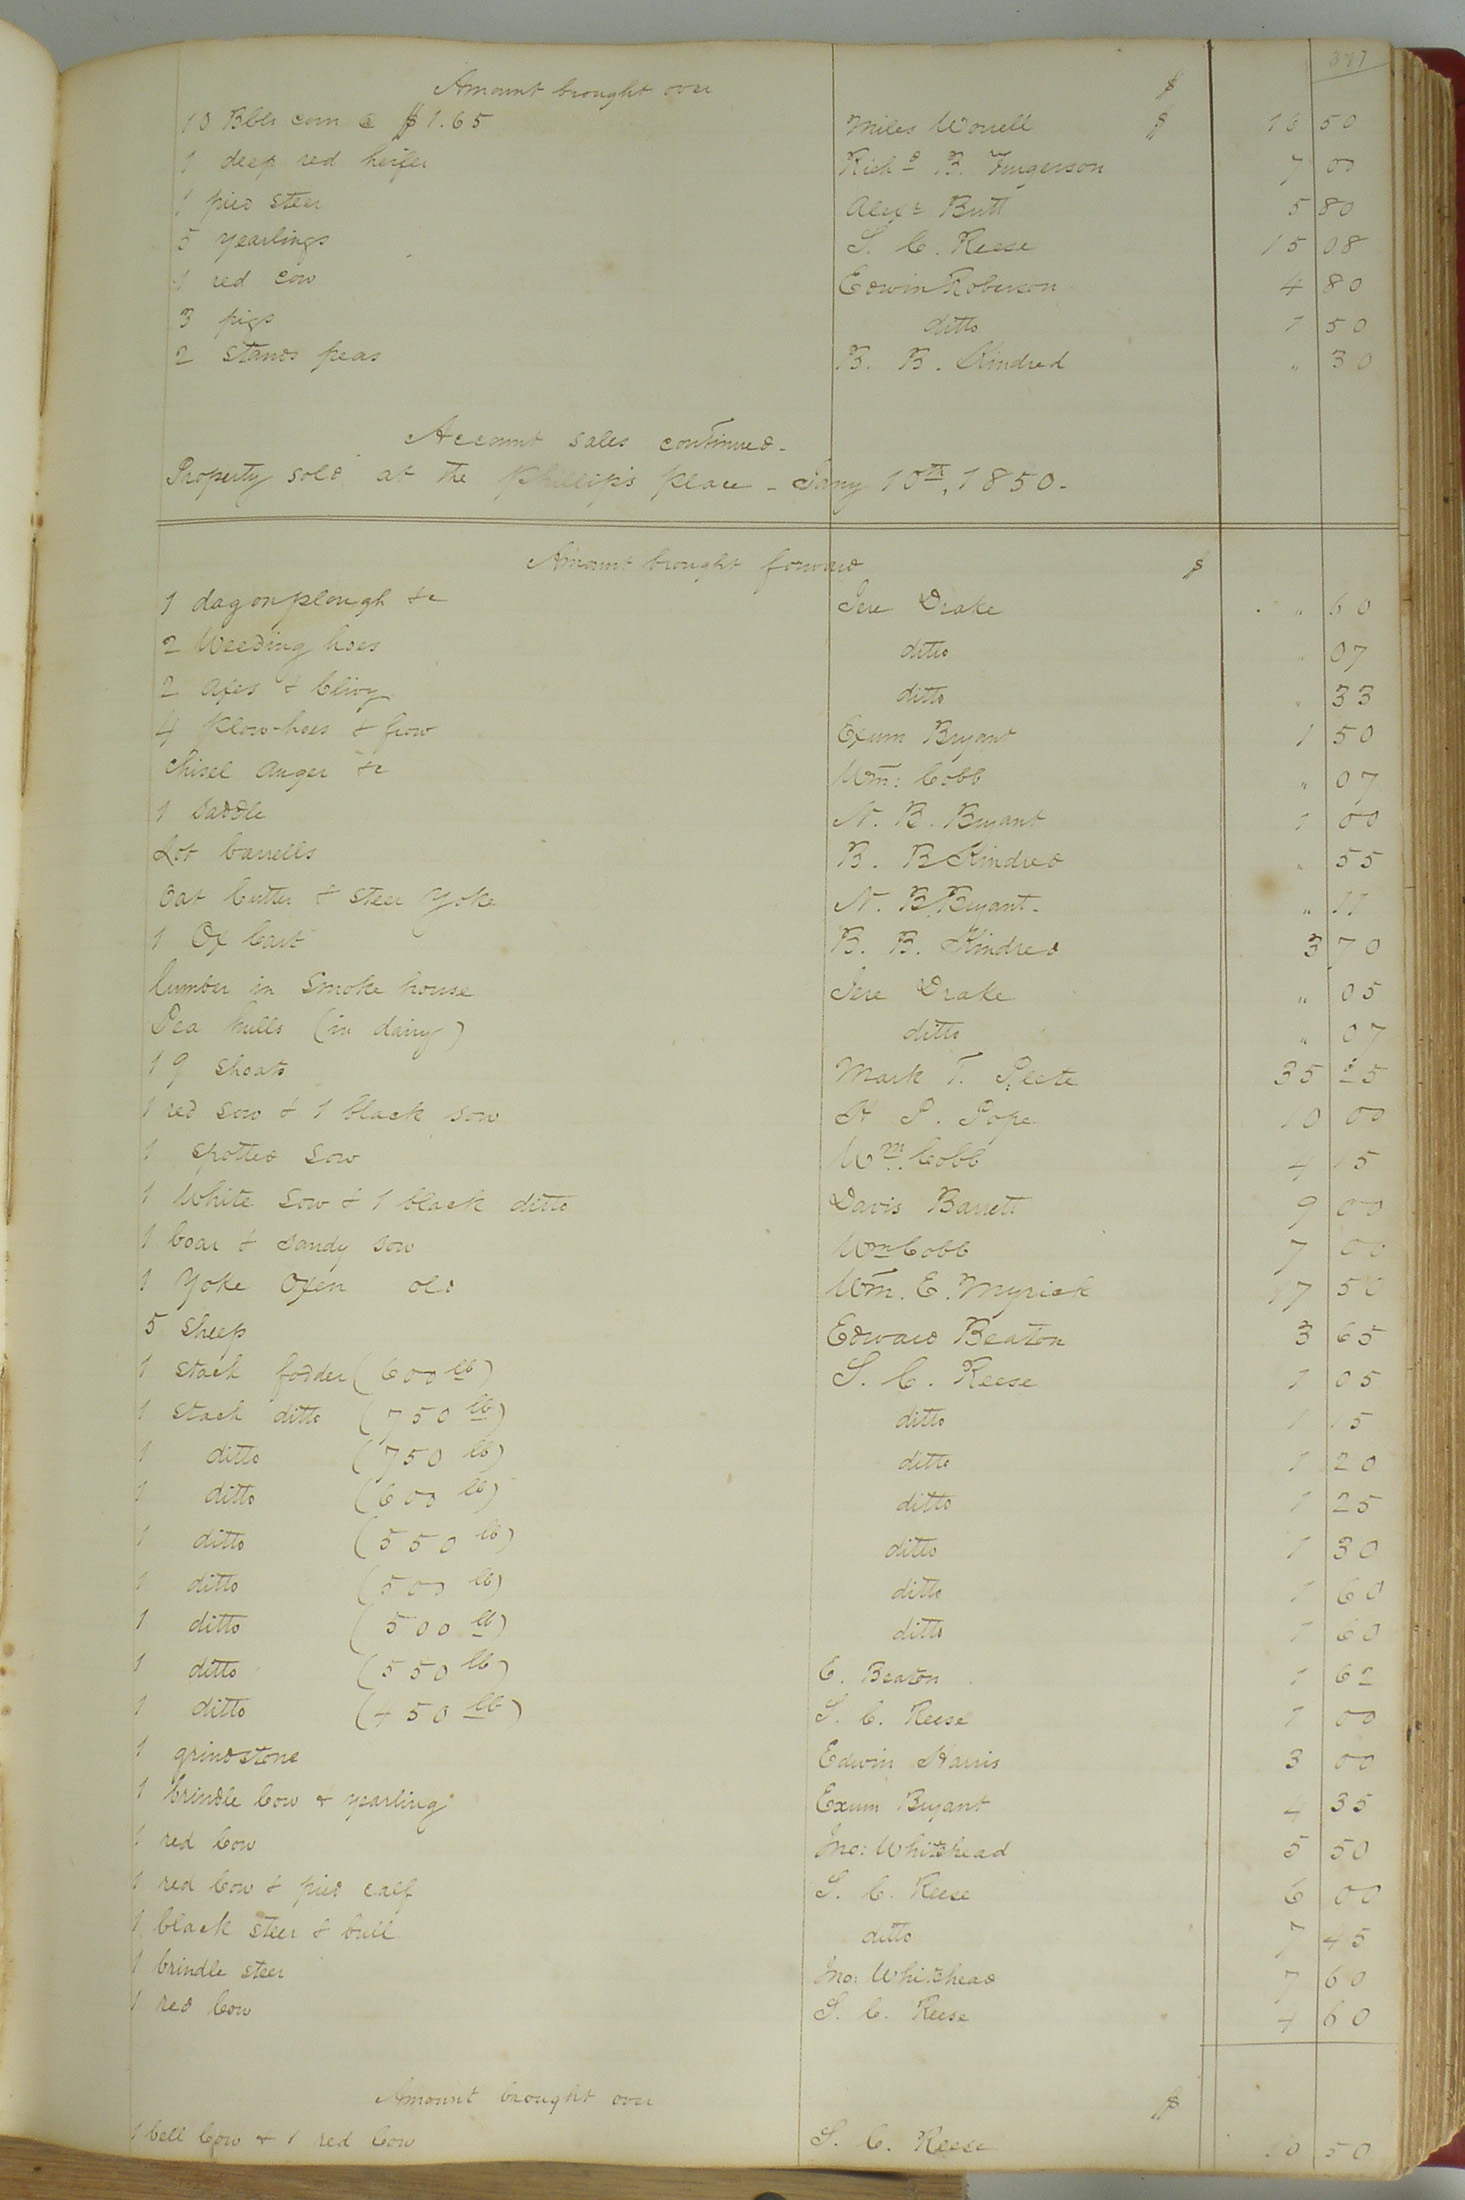 Amount brought over $
10 Bbls corn @ $1.65 Miles Worrell $ 16 50
1 deep red heifer Richd B. Furgerson 7 00
1 pied steer Alexr Butt 5 80
5 yearlings S. C. Reese 15 08
1 red cow Edwin Roberson 4 80
3 pigs ditto 1 50
2 stands peas B. B. Kindred " 30
Account sales continued -
Property sold at the Phillips place - Jany 10th, 1850 -
Amount brought forward $
1 dagonplough &c Jere Drake " 60
2 Weeding hoes ditto " 07
2 axes & Clivy ditto " 33
4 plow-hoes & frow Exum Bryant 1 50
Chisel auger &c Wm: Cobb " 07
1 saddle N. B. Bryant 1 00
Lot barrells B. B Kindred " 55
Oat Cutter & steer Yoke N. B. Bryant - " 11
1 Ox Cart B. B. Kindred 3 70
lumber in smoke house Jere Drake " 05
Pea hulls (in dairy) ditto " 07
19 shoats Mark T. Peete 35 25
1 red sow & 1 black sow H P. Pope 10 00
1 spotted sow Wm. Cobb 4 15
1 White sow & 1 black ditto Davis Barrett 9 00
1 boar & sandy sow Wm Cobb 7 00
1 Yoke Oxen old Wm. E. Myrick 17 50
5 sheep Edward Beaton 3 65
1 stack fodder (600 lb) S. C. Reese 1 05
1 stack ditto (750 lb) ditto 1 15
1 ditto (750 lb) ditto 1 20
1 ditto (600 lb) ditto 1 25
1 ditto (550 lb) ditto 1 30
1 ditto (500 lb) ditto 1 60
1 ditto (500 lb) ditto 1 60
1 ditto (550 lb) E. Beaton 1 62
1 ditto (450 lb) S. C. Reese 1 00
1 grindstone Edwin Harris 3 00
1 brindle Cow & yearling Exum Bryant 4 35
1 red Cow Jno: Whitehead 5 50
1 red Cow & pied calf S. C. Reese 6 00
1 black steer & bull ditto 7 45
1 brindle steer Jno: Whitehead 7 60
1 red Cow S. C. Reese 4 60
Amount brought over $
1 bell Cow & 1 red Cow S. C. Reese 10 50